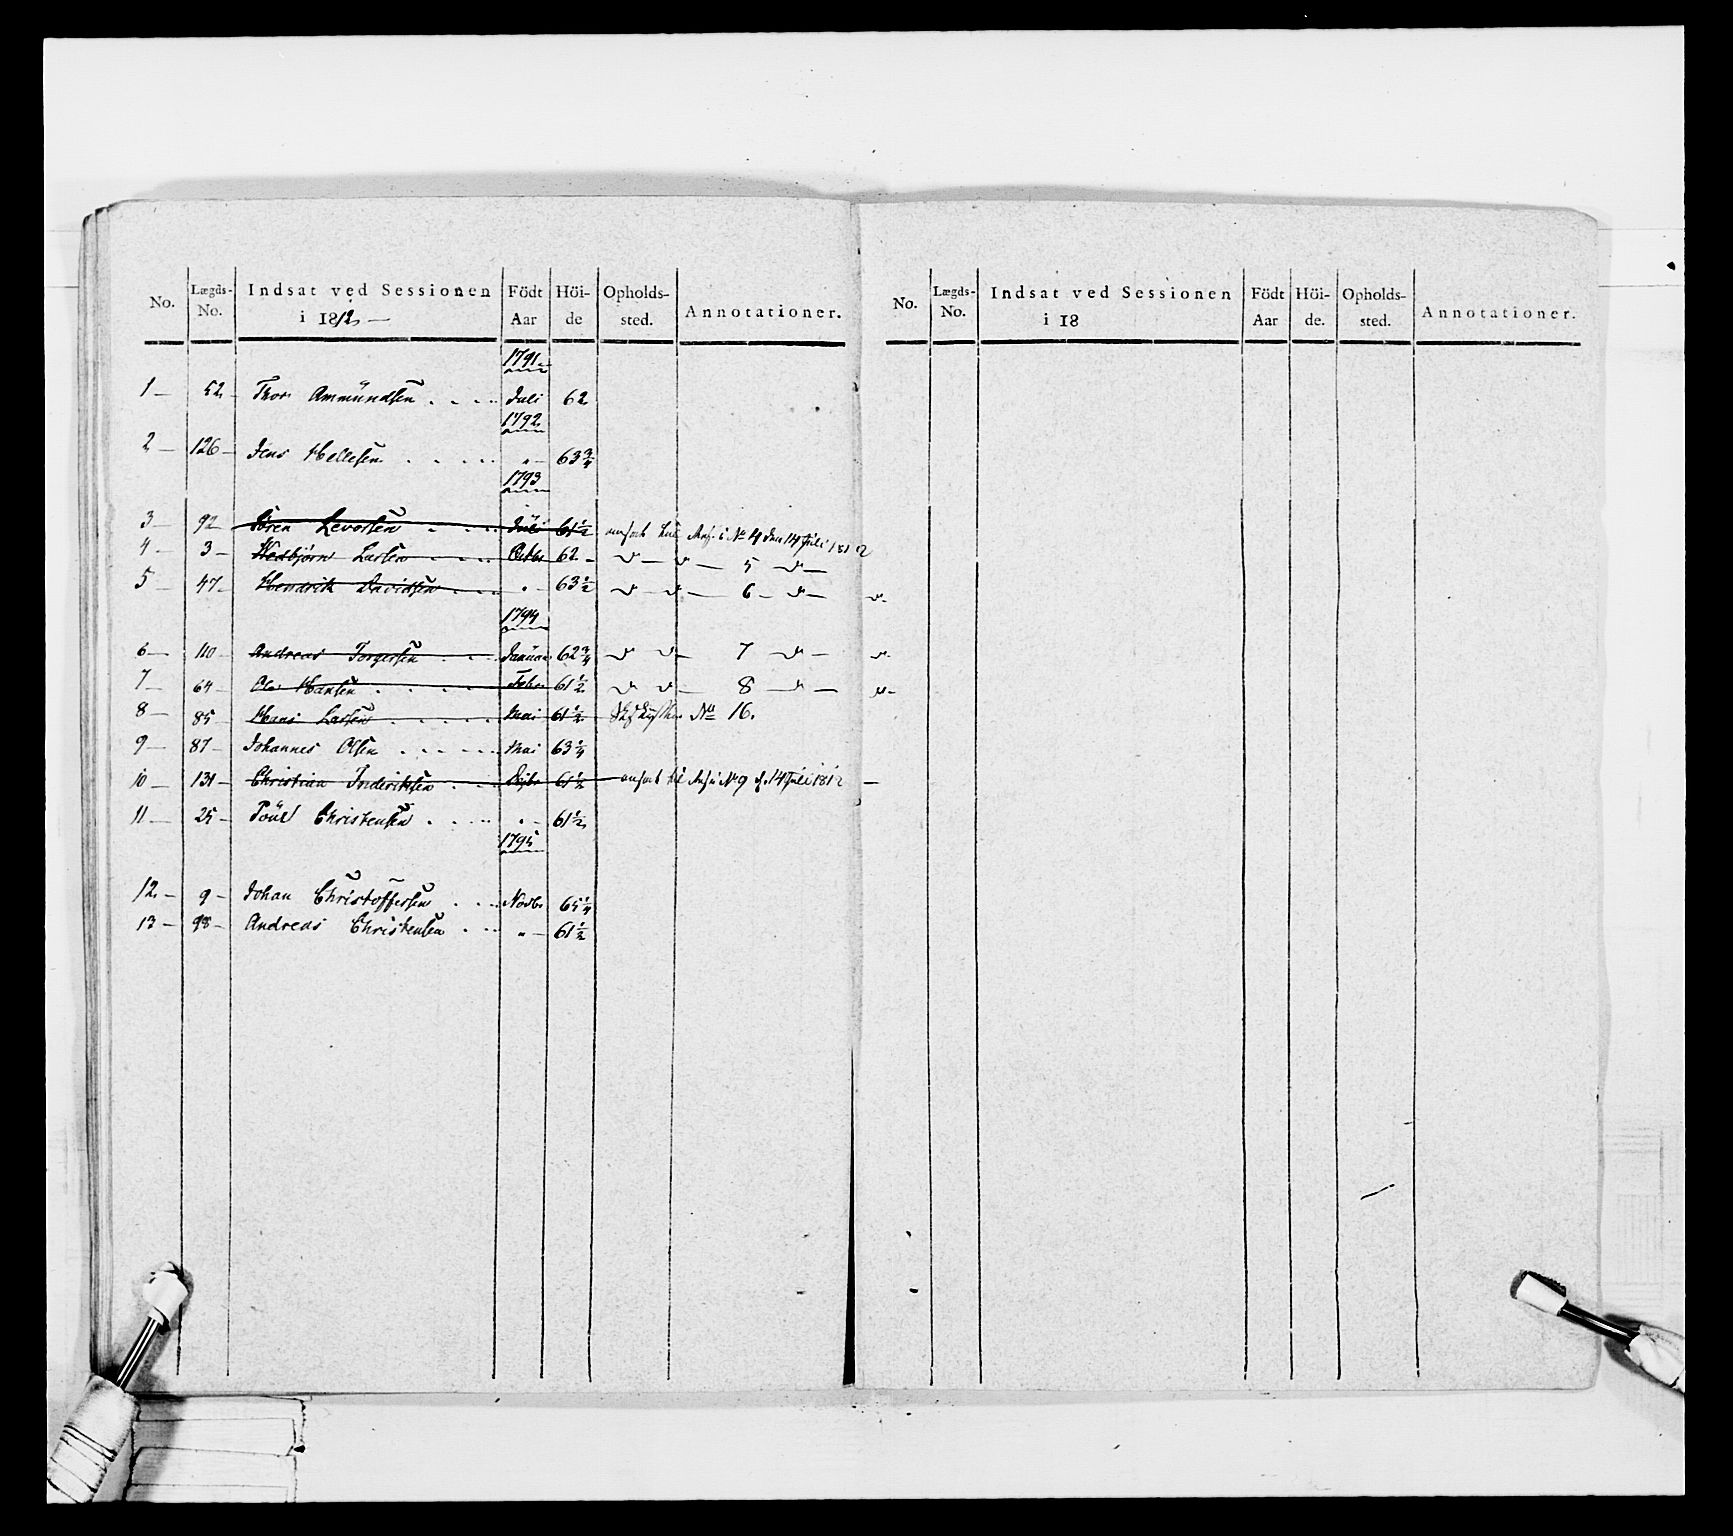 No. Lægds-No. Indsat ved Sessionen i 1812 Födt Aar Höi-de Opholds-sted. Annotationer.
1791
1 — 52 — Thor Ammündsen . . . . Juli 62
1792
2 — 126 — Jens Hellesen . . . . . „ — 63 3/4
1793
3 — 92 Sören Levorsen . . . . Juli 61 1/2 No 4 den 14 Juli 1812
4 — 3 — Larsen . . . . Octbr 62 — 5
5 — 47 — Hendrik Davidsen . . . . „ — 63 1/2 6
1794
6 — 110 — Andreas Torgersen . . . Januar 62 3/4 7
7 — 64 — Ole Hansen . . . . Febr 61 1/2 8
8 — 85 — Hans Larsen . . . . . Mai 61 1/2 No 16.
9 — 87 — Johannes Olsen . . . . . Mai 63 1/4
10 — 131 — Christian . . . 61 1/2 No 9 d. 14 Juli 1812 —
11 — 25 — Poül Christensen . . . . . „ — 61 1/2
1795
12 — 9 — Johan Christoffersen . . . Novbr 65 1/4
13 — 98 — Andreas Christensen . . . „ — 61 1/2
No. Lægds-No. Indsat ved Sessionen i 18 Födt Aar Höi-de. Opholds-sted. Annotationer.